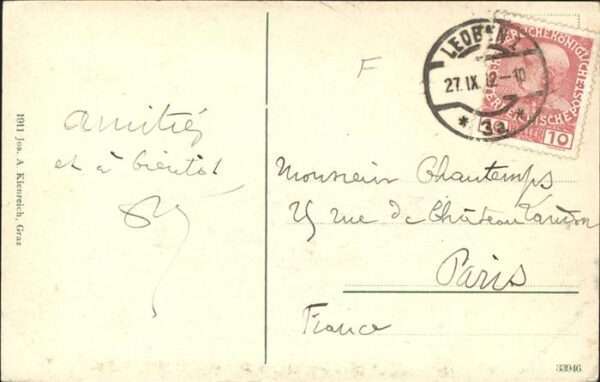 LEOBEN 1
27.IX.12-10
* 3a *
KAISERLICHEKÖNIGLICHE ÖSTERREICHISCHE POST
10
F
amitiés
et à bientôt
1911 Jos. A. Kienreich, Graz
Monsieur Chautemps
25 rue de Château Landon
Paris
France
33946